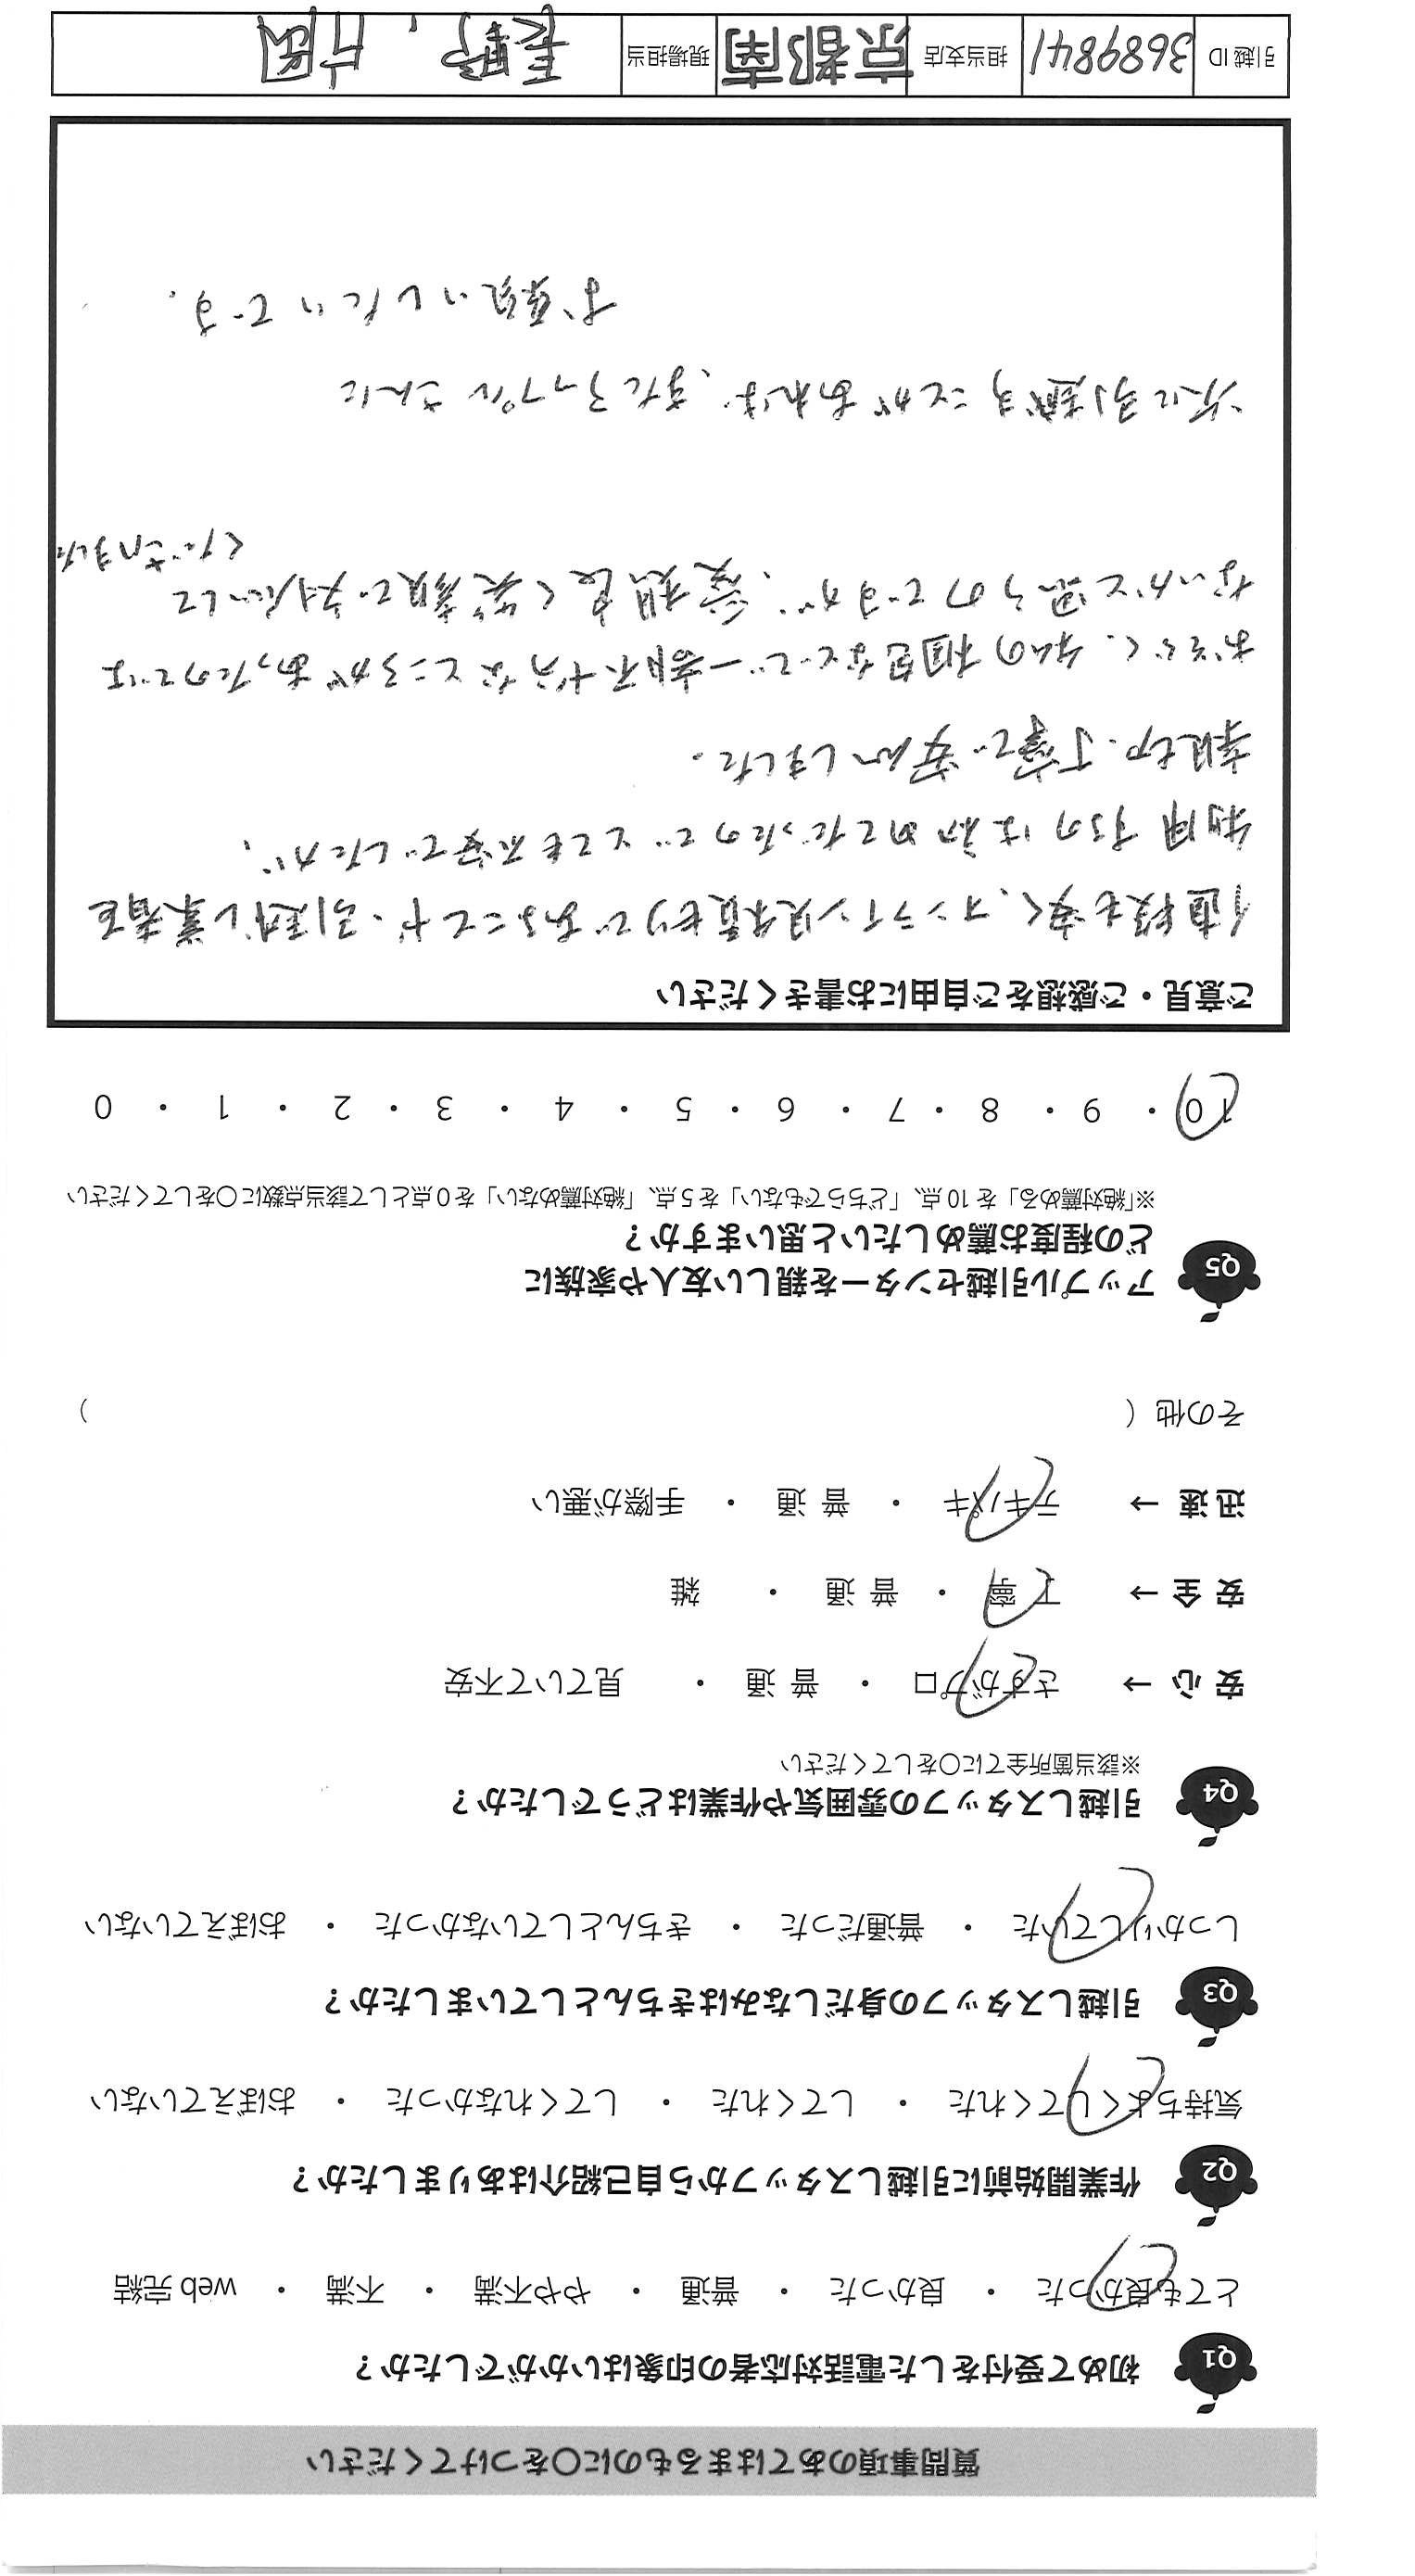 質問事項のあてはまるものに〇をつけてください
Q1 初めて受付をした電話対応者の印象はいかがでしたか？
とても良かった ・ 良かった ・ 普通 ・ やや不満 ・ 不満 ・ web 完結
Q2 作業開始前に引越しスタッフから自己紹介はありましたか？
気持ちよくしてくれた ・ してくれた ・ してくれなかった ・ おぼえていない
Q3 引越しスタッフの身だしなみはきちんとしていましたか？
しっかりしていた ・ 普通だった ・ きちんとしていなかった ・ おぼえていない
Q4 引越しスタッフの雰囲気や作業はどうでしたか？
※該当箇所全てに〇をしてください
安心 → さすがプロ ・ 普通 ・ 見ていて不安
安全 → 丁寧 ・ 普通 ・ 雑
迅速 → テキパキ ・ 普通 ・ 手際が悪い
その他（ ）
Q5 アップル引越センターを親しい友人や家族に
どの程度お薦めしたいと思いますか？
※「絶対薦める」を 10 点、「どちらでもない」を 5 点、「絶対薦めない」を 0 点として該当点数に〇をしてください
10 ・ 9 ・ 8 ・ 7 ・ 6 ・ 5 ・ 4 ・ 3 ・ 2 ・ 1 ・ 0
ご意見・ご感想をご自由にお書きください
値段も安く、オンライン見積もりであることや、引越し業者を
利用するのは初めてだったのでとても不安でしたが、
親切、丁寧で安心しました。
おそらく、私の梱包などで一部不十分なところがあったのでは
ないかと思うのですが、愛想良く笑顔で対応して
くださいました
次に引越すことがあれば、またアップルさんに
お願いしたいです。
引越 ID 3689841 担当支店 京都南 現場担当 長野、片岡